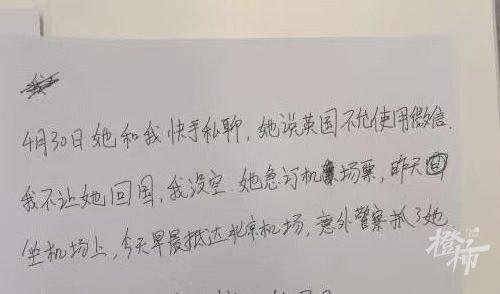 4月30日她和我快手私聊,她说英国不允使用微信.
我不让她回国,我没空.她急订机场票,昨天回
坐机场上,今天早晨抵达北京机场,意外警察抓了她
橙柿